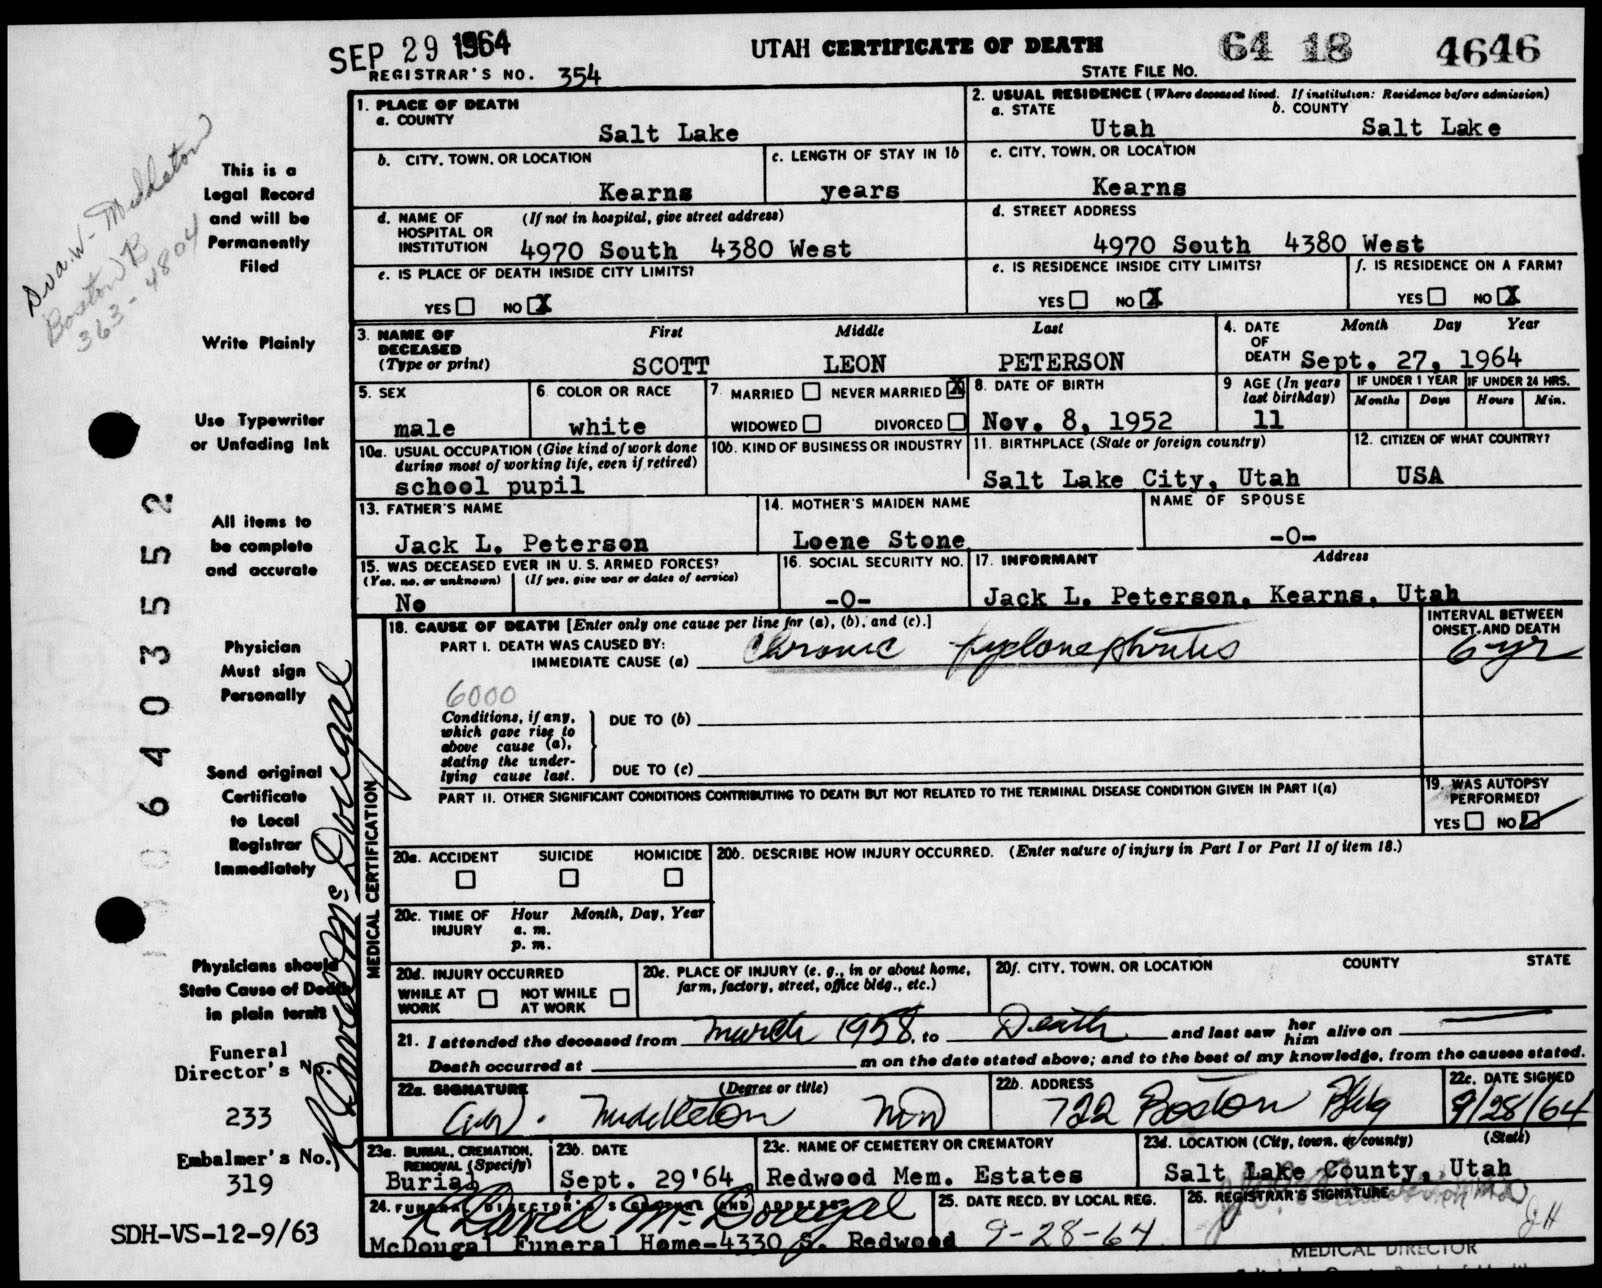 SEP 29 1964
UTAH CERTIFICATE OF DEATH
64 18 4646
REGISTRAR'S NO. 354
STATE FILE NO.
1. PLACE OF DEATH
a. COUNTY
Salt Lake
2. USUAL RESIDENCE (Where deceased lived. If institution: Residence before admission)
a. STATE
Utah
b. COUNTY
Salt Lake
b. CITY, TOWN, OR LOCATION
Kearns
c. LENGTH OF STAY IN 1b
years
c. CITY, TOWN, OR LOCATION
Kearns
d. NAME OF HOSPITAL OR INSTITUTION
(If not in hospital, give street address)
4970 South 4380 West
d. STREET ADDRESS
4970 South 4380 West
e. IS PLACE OF DEATH INSIDE CITY LIMITS?
YES NO X
e. IS RESIDENCE INSIDE CITY LIMITS?
YES NO X
f. IS RESIDENCE ON A FARM?
YES NO X
3. NAME OF DECEASED
(Type or print)
First Middle Last
SCOTT LEON PETERSON
4. DATE OF DEATH
Month Day Year
Sept. 27, 1964
5. SEX
male
6. COLOR OR RACE
white
7. MARRIED NEVER MARRIED X
WIDOWED DIVORCED
8. DATE OF BIRTH
Nov. 8, 1952
9 AGE (In years last birthday)
11
IF UNDER 1 YEAR
Months Days
IF UNDER 24 HRS.
Hours Min.
10a. USUAL OCCUPATION (Give kind of work done during most of working life, even if retired)
school pupil
10b. KIND OF BUSINESS OR INDUSTRY
11. BIRTHPLACE (State or foreign country)
Salt Lake City, Utah
12. CITIZEN OF WHAT COUNTRY?
USA
13. FATHER'S NAME
Jack L. Peterson
14. MOTHER'S MAIDEN NAME
Loene Stone
NAME OF SPOUSE
-0-
15. WAS DECEASED EVER IN U. S. ARMED FORCES?
(Yes, no, or unknown) (If yes, give war or dates of service)
No
16. SOCIAL SECURITY NO.
-0-
17. INFORMANT Address
Jack L. Peterson, Kearns, Utah
MEDICAL CERTIFICATION
18. CAUSE OF DEATH [Enter only one cause per line for (a), (b), and (c).]
PART I. DEATH WAS CAUSED BY:
IMMEDIATE CAUSE (a) Chronic pyelonephritis
INTERVAL BETWEEN ONSET AND DEATH
6 yr
6000
Conditions, if any, which gave rise to above cause (a), stating the underlying cause last.
DUE TO (b)
DUE TO (c)
PART II. OTHER SIGNIFICANT CONDITIONS CONTRIBUTING TO DEATH BUT NOT RELATED TO THE TERMINAL DISEASE CONDITION GIVEN IN PART I(a)
19. WAS AUTOPSY PERFORMED?
YES NO
20a. ACCIDENT SUICIDE HOMICIDE
20b. DESCRIBE HOW INJURY OCCURRED. (Enter nature of injury in Part I or Part II of item 18.)
20c. TIME OF INJURY Hour Month, Day, Year
a. m.
p. m.
20d. INJURY OCCURRED
WHILE AT WORK NOT WHILE AT WORK
20e. PLACE OF INJURY (e. g., in or about home, farm, factory, street, office bldg., etc.)
20f. CITY, TOWN, OR LOCATION COUNTY STATE
21. I attended the deceased from March 1958, to Death and last saw her him alive on
Death occurred at m on the date stated above; and to the best of my knowledge, from the causes stated.
22a. SIGNATURE (Degree or title)
Middleton MD
22b. ADDRESS
722 Boston Bldg
22c. DATE SIGNED
9/28/64
23a. BURIAL, CREMATION, REMOVAL (Specify)
Burial
23b. DATE
Sept. 29'64
23c. NAME OF CEMETERY OR CREMATORY
Redwood Mem. Estates
23d. LOCATION (City, town, or county) (State)
Salt Lake County, Utah
24. FUNERAL DIRECTOR'S SIGNATURE AND ADDRESS
R David McDougal
McDougal Funeral Home-4330 S. Redwood
25. DATE RECD. BY LOCAL REG.
9-28-64
26. REGISTRAR'S SIGNATURE
JH
MEDICAL DIRECTOR
Middleton
Boston B
363-4804
This is a
Legal Record
and will be
Permanently
Filed
Write Plainly
Use Typewriter
or Unfading Ink
All items to
be complete
and accurate
Physician
Must sign
Personally
Send original
Certificate
to Local
Registrar
Immediately
Physicians should
State Cause of Death
in plain terms
Funeral
Director's No.
233
Embalmer's No.
319
SDH-VS-12-9/63
R David McDougal
0 6 4 0 3 5 5 2